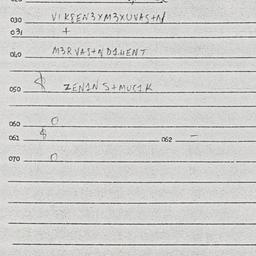 030 VIKSEN3XM3XUVAS+N
031 +
040 M3RVAS+ND1HENT
050 ZEN1N S+MUC1K
060 0
061 $ 062 -
070 0